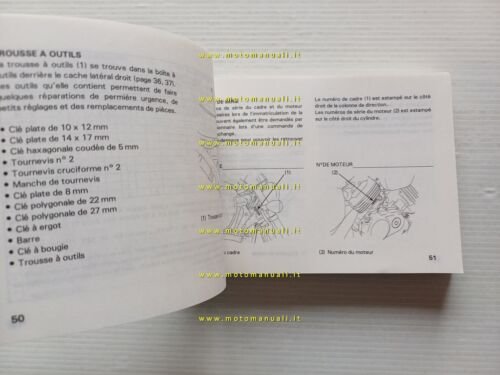 ROUSSE A OUTILS
a trousse à outils (1) se trouve dans la boîte à
utils derrière le cache latéral droit (page 36, 37).
es outils qu'elle contient permettent de faire
uelques réparations de permière urgence, de
etits réglages et des remplacements de pièces.
• Clé plate de 10 x 12 mm
• Clé plate de 14 x 17 mm
• Clé haxagonale coudée de 5 mm
• Tournevis n° 2
• Tournevis cruciforme n° 2
• Manche de tournevis
• Clé plate de 8 mm
• Clé polygonale de 22 mm
• Clé polygonale de 27 mm
• Clé à ergot
• Barre
• Clé à bougie
• Trousse à outils
50
de série du cadre et du moteur
aires lors de l'immatriculation de la
uvent également être demandés par
ionnaire lors d'une commande de
change.
numéros pour pouvoir les retrouver
(1)
(1)
du cadre
Le numéro de cadre (1) est estampé sur le côté
droit de la colonne de direction.
Les numéros de série du moteur (2) est estampé
sur le côté droit du cylindre.
N°DE MOTEUR
(2)
(2) Numéro du moteur
51
www.motomanuali.it
www.motomanuali.it
www.motomanuali.it
www.motomanuali.it
www.motomanuali.it